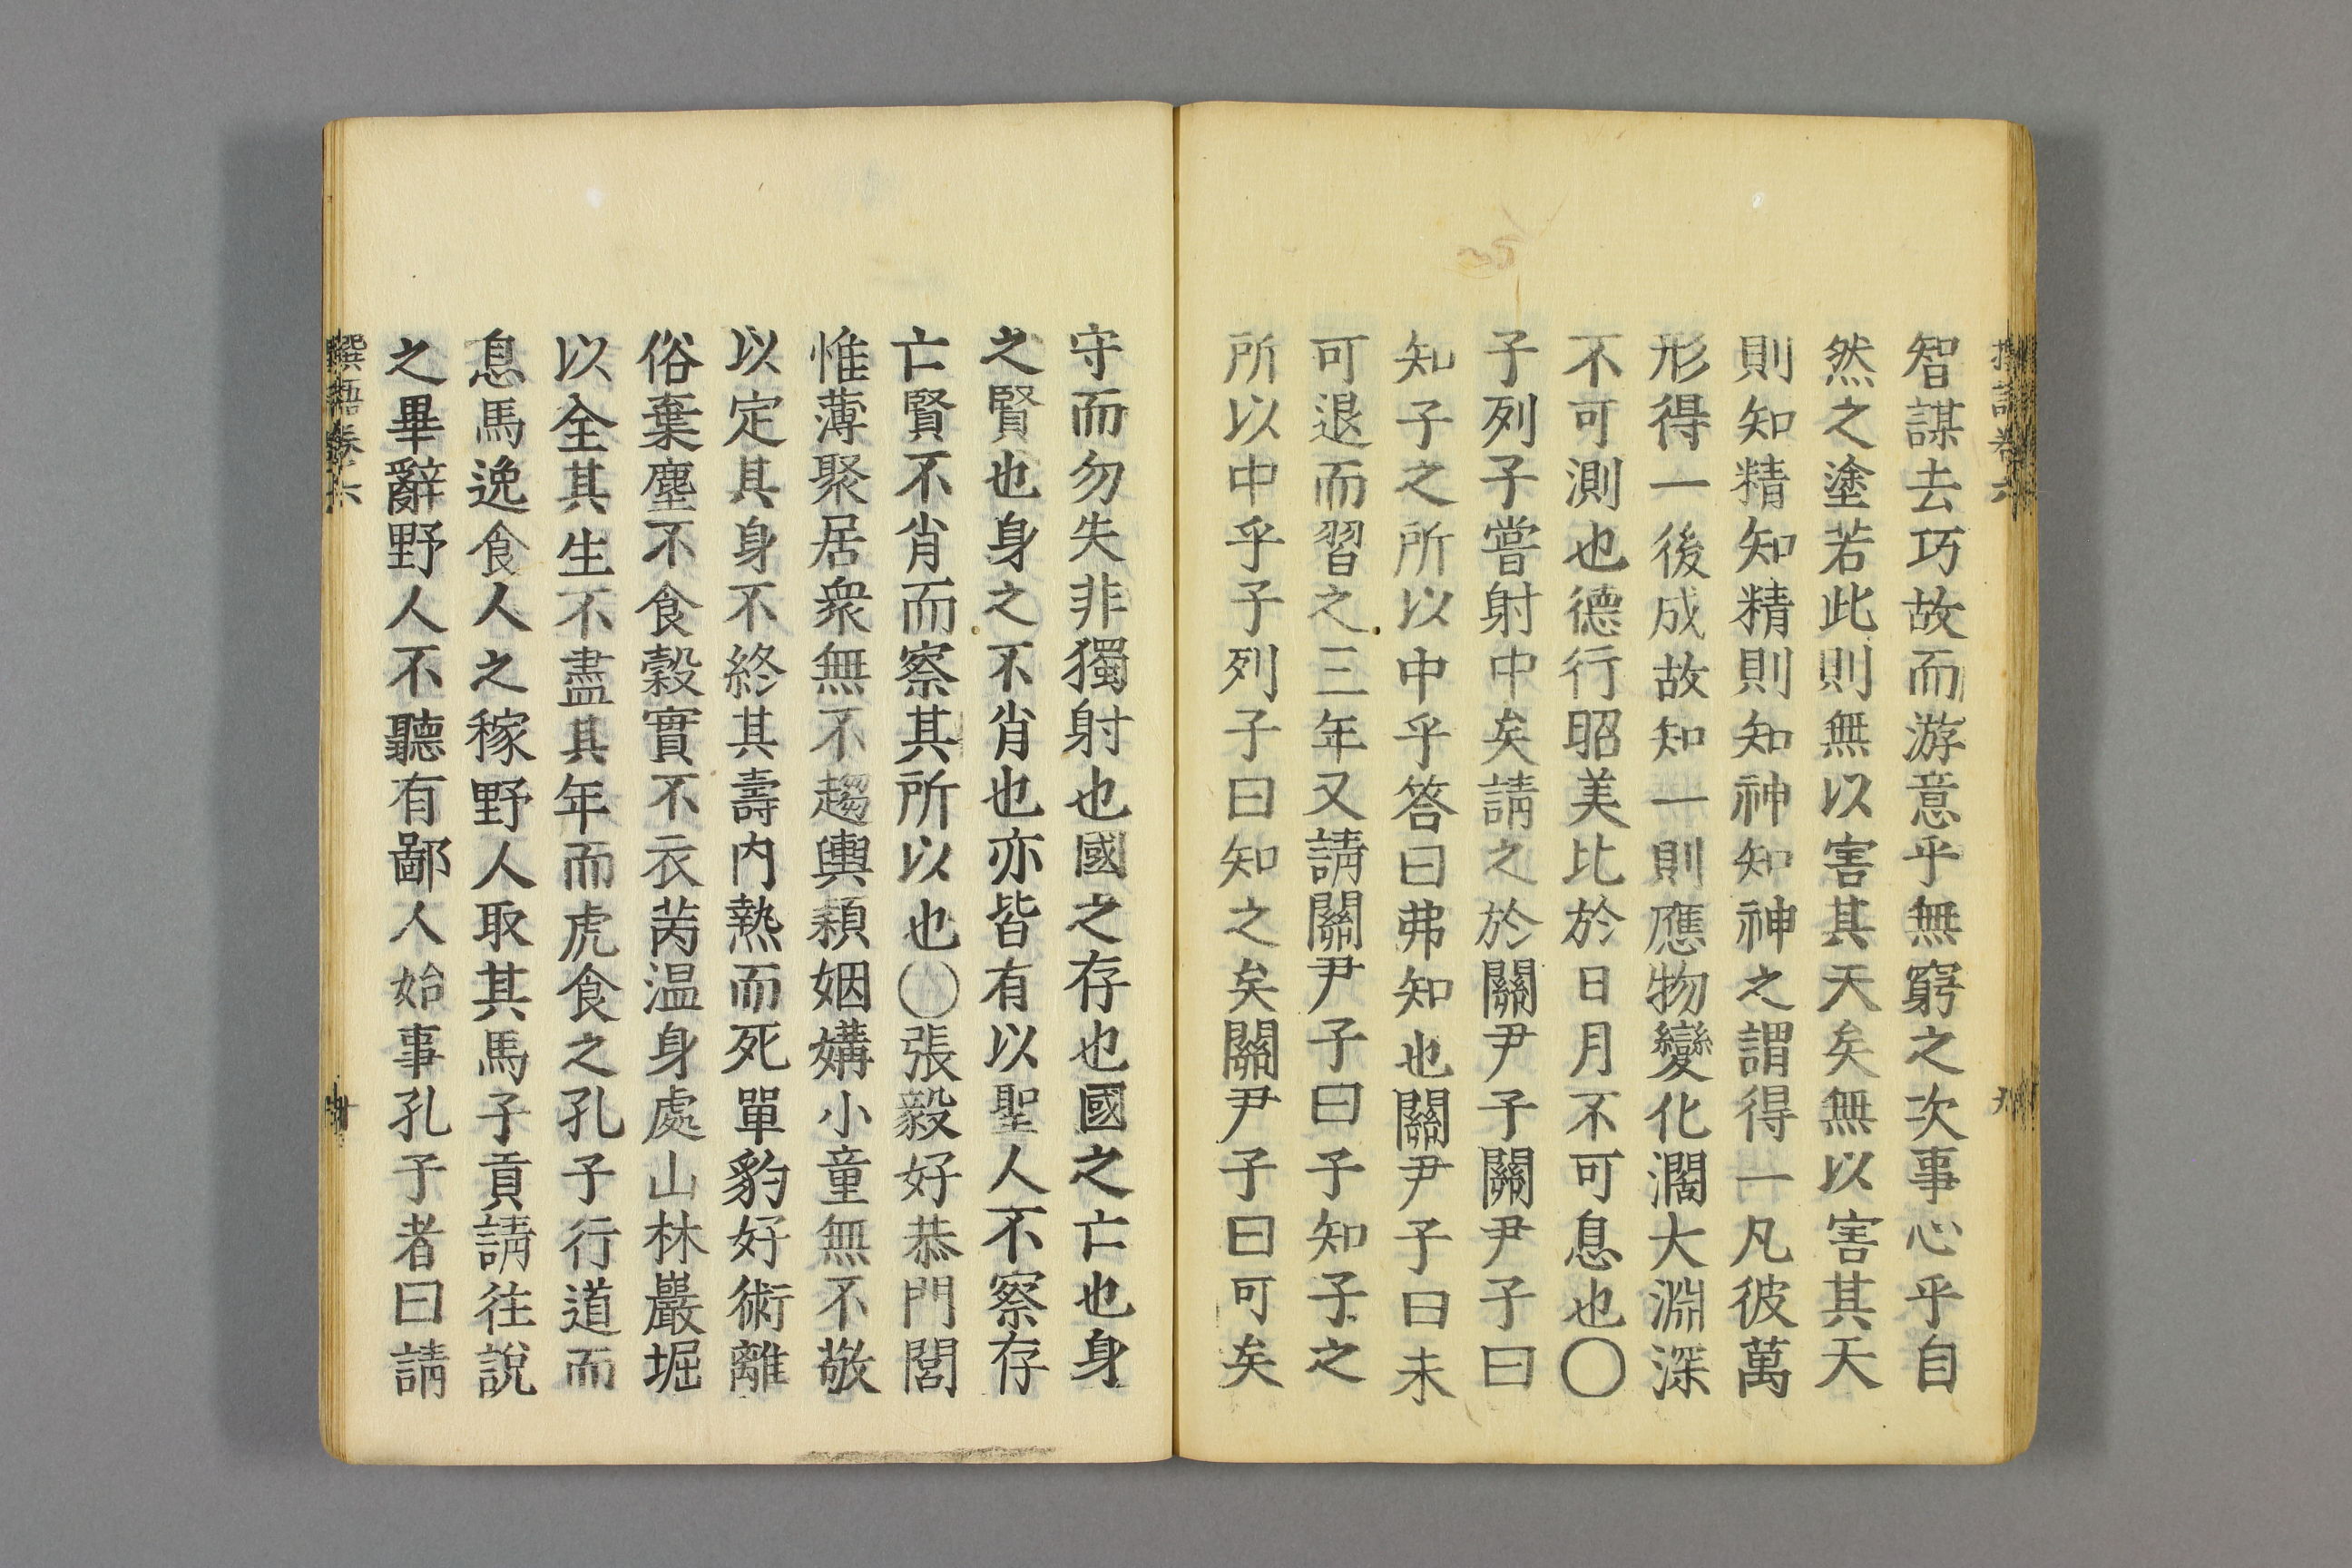 智謀去巧故而游意乎無窮之次事心乎自
然之塗若此則無以害其天矣無以害其天
則知精知精則知神知神之謂得一凡彼萬
形得一後成故知一則應物變化濶大淵深
不可測也德行昭美比於日月不可息也〇
子列子嘗射中矣請之於關尹子關尹子曰
知子之所以中乎答曰弗知也關尹子曰未
可退而習之三年又請關尹子曰子知子之
所以中乎子列子曰知之矣關尹子曰可矣
守而勿失非獨射也國之存也國之亡也身
之賢也身之不肖也亦皆有以聖人不察存
亡賢不肖而察其所以也〇張毅好恭門閭
惟薄聚居衆無不趨輿頪姻媾小童無不敬
以定其身不終其壽内熱而死單豹好術離
俗棄塵不食穀實不衣芮温身處山林巖堀
以全其生不盡其年而虎食之孔子行道而
息馬逸食人之稼野人取其馬子貢請往說
之畢辭野人不聽有鄙人始事孔子者曰請
撰語卷六